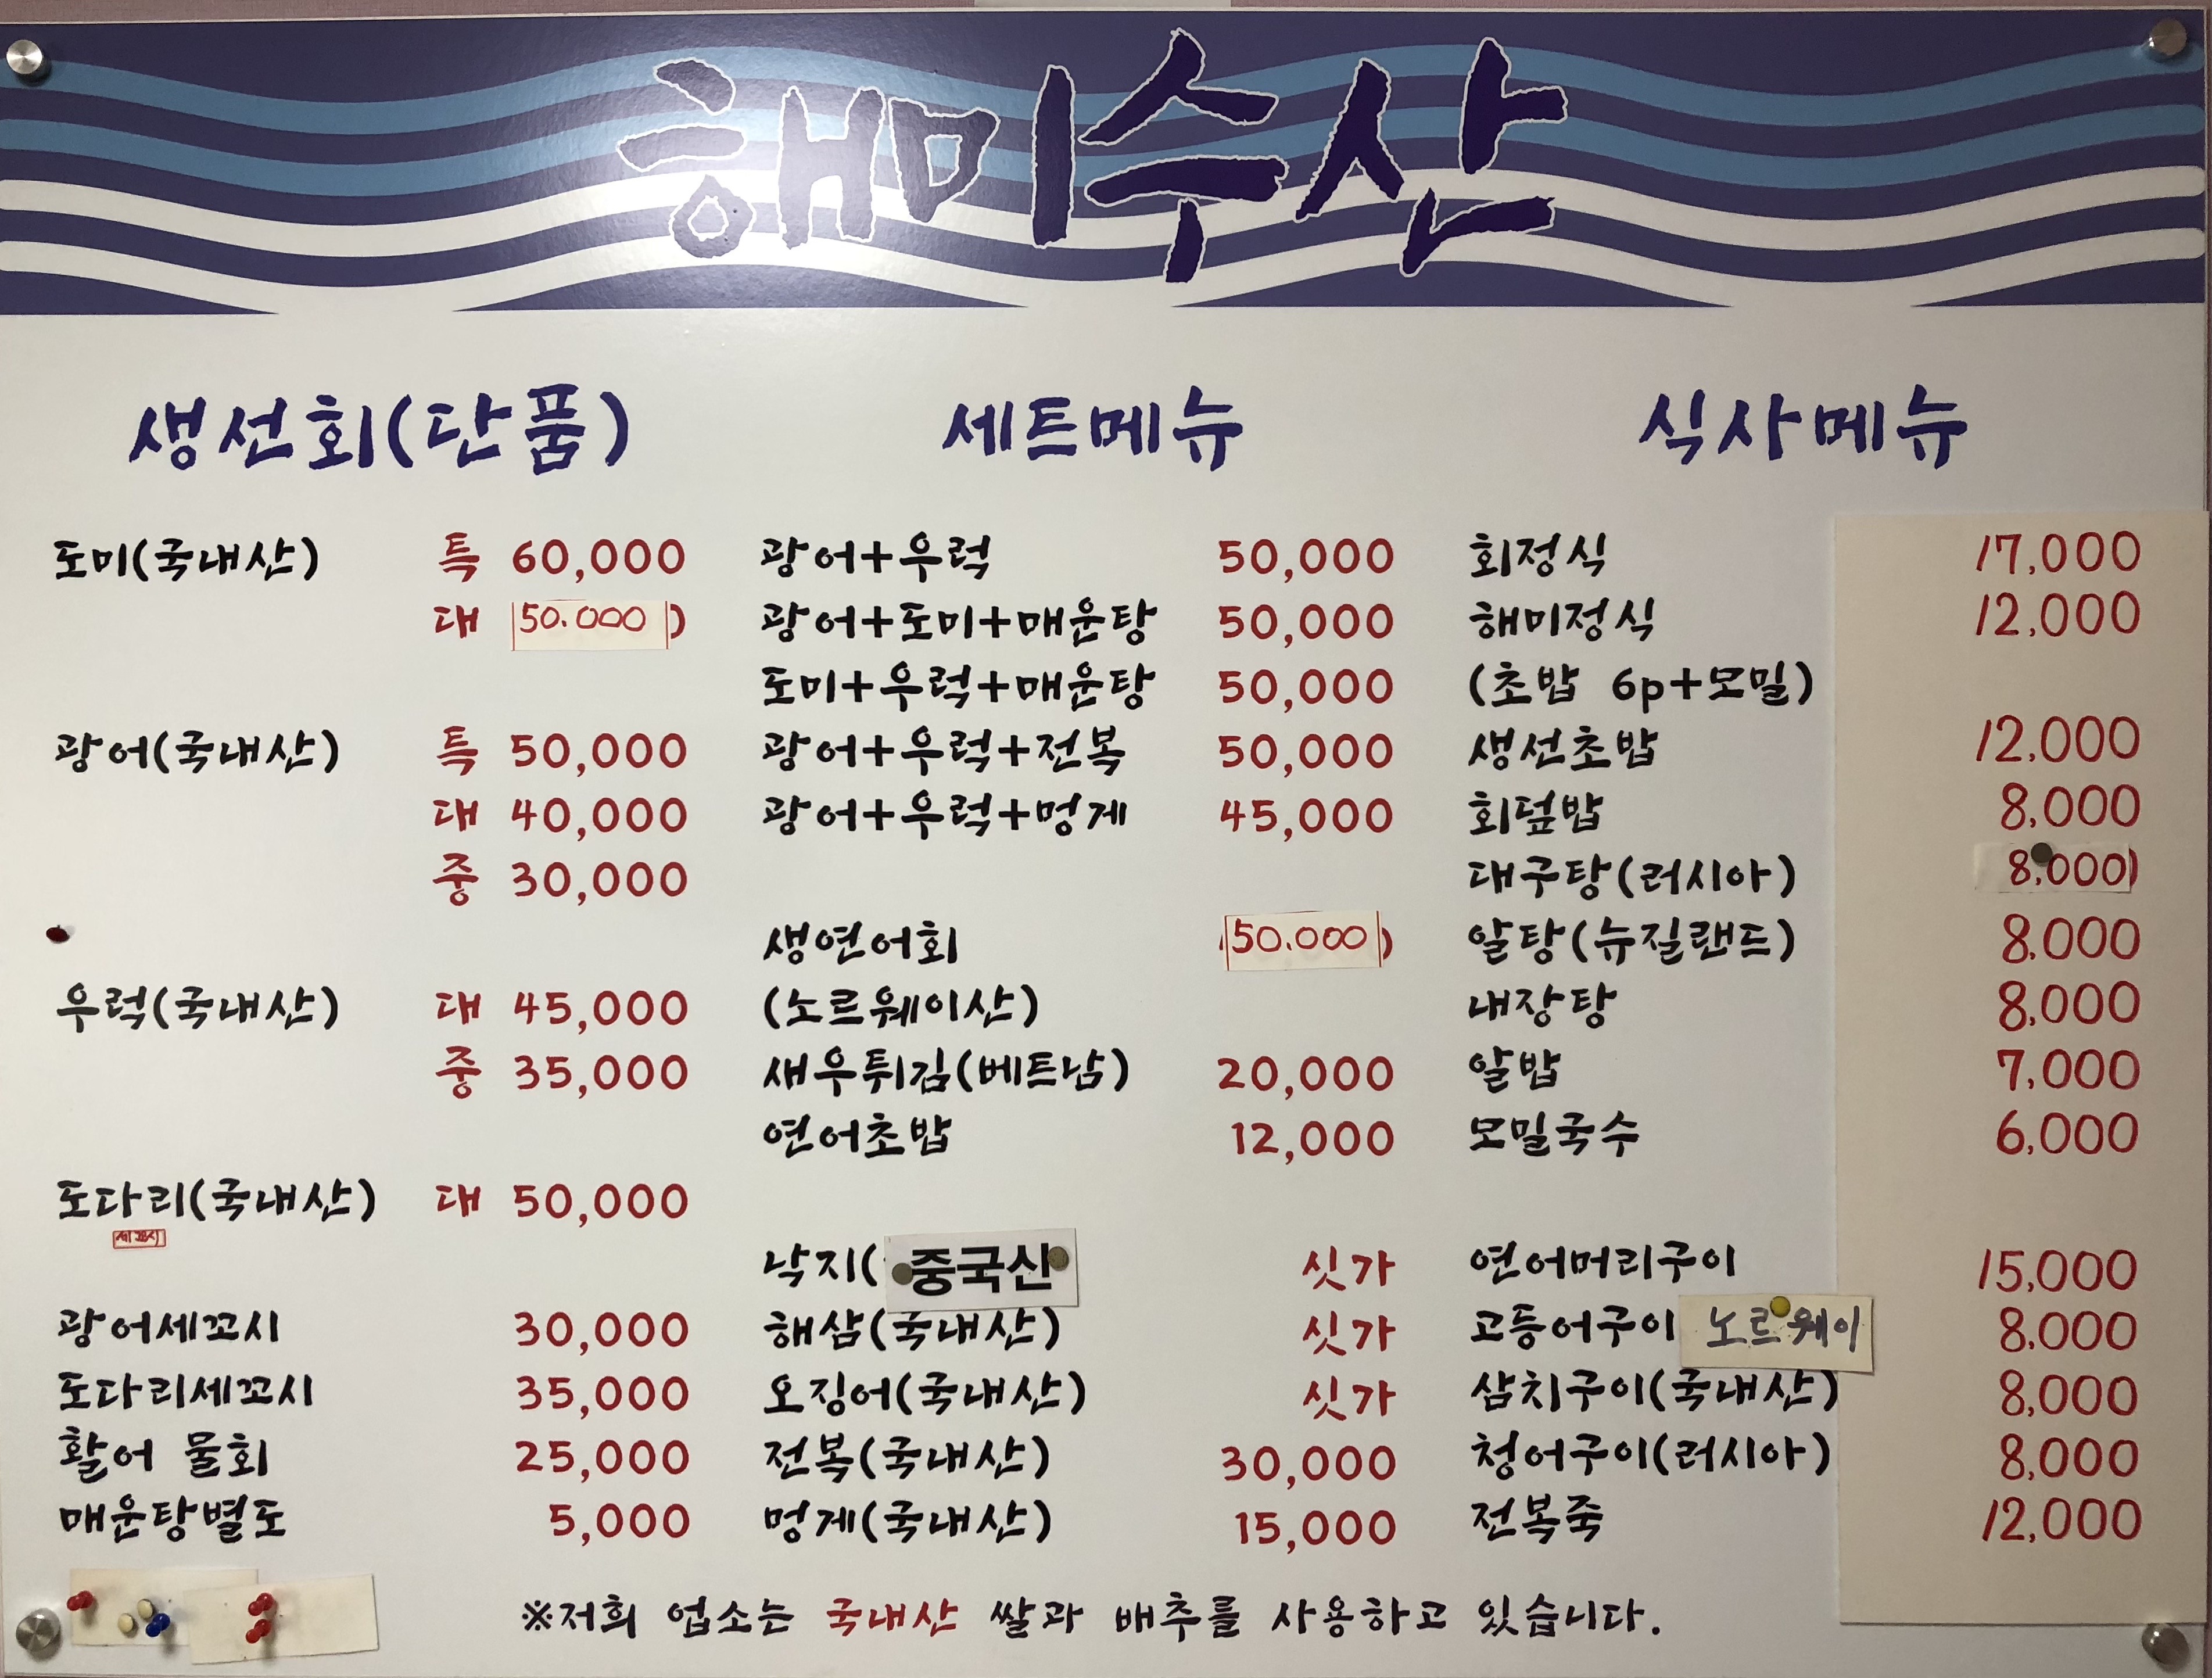 해미수산
생선회(단품)
도미(국내산) 특 60,000
대 50.000
광어(국내산) 특 50,000
대 40,000
중 30,000
우럭(국내산) 대 45,000
중 35,000
도다리(국내산) 대 50,000
광어세꼬시 30,000
도다리세꼬시 35,000
활어 물회 25,000
매운탕별도 5,000
세트메뉴
광어+우럭 50,000
광어+도미+매운탕 50,000
도미+우럭+매운탕 50,000
광어+우럭+전복 50,000
광어+우럭+멍게 45,000
생연어회 50.000
(노르웨이산)
새우튀김(베트남) 20,000
연어초밥 12,000
낙지( 중국산 싯가
해삼(국내산) 싯가
오징어(국내산) 싯가
전복(국내산) 30,000
멍게(국내산) 15,000
식사메뉴
회정식 17,000
해미정식 12,000
(초밥 6p+모밀)
생선초밥 12,000
회덮밥 8,000
대구탕(러시아) 8,000
알탕(뉴질랜드) 8,000
내장탕 8,000
알밥 7,000
모밀국수 6,000
연어머리구이 15,000
고등어구이 노르웨이 8,000
삼치구이(국내산) 8,000
청어구이(러시아) 8,000
전복죽 12,000
※저희 업소는 국내산 쌀과 배추를 사용하고 있습니다.